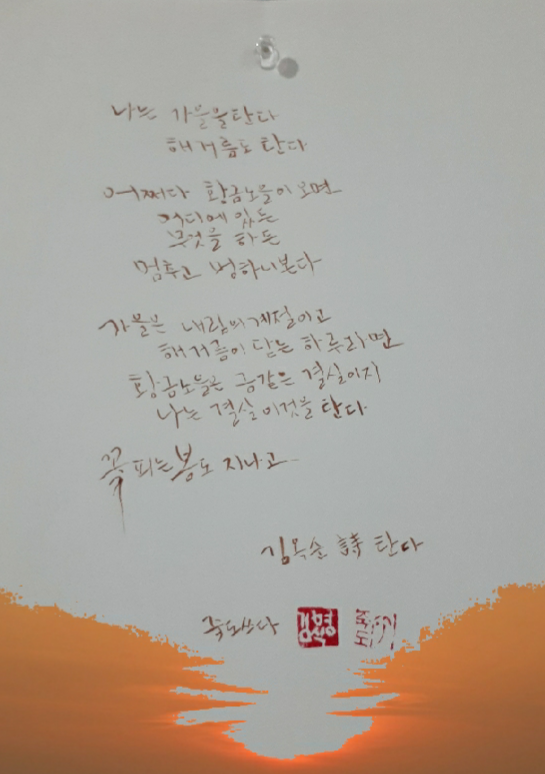 나는 가을을 탄다
해거름도 탄다
어쩌다 황금노을이 오면
어디에 있든
무엇을 하든
멈추고 멍하니 본다
가을은 내림의 계절이고
해거름이 닫는 하루라면
황금노을은 금같은 결실이지
나는 결실 이것을 탄다
꽃 피는 봄도 지나고
김옥순 詩 탄다
죽도쓰다